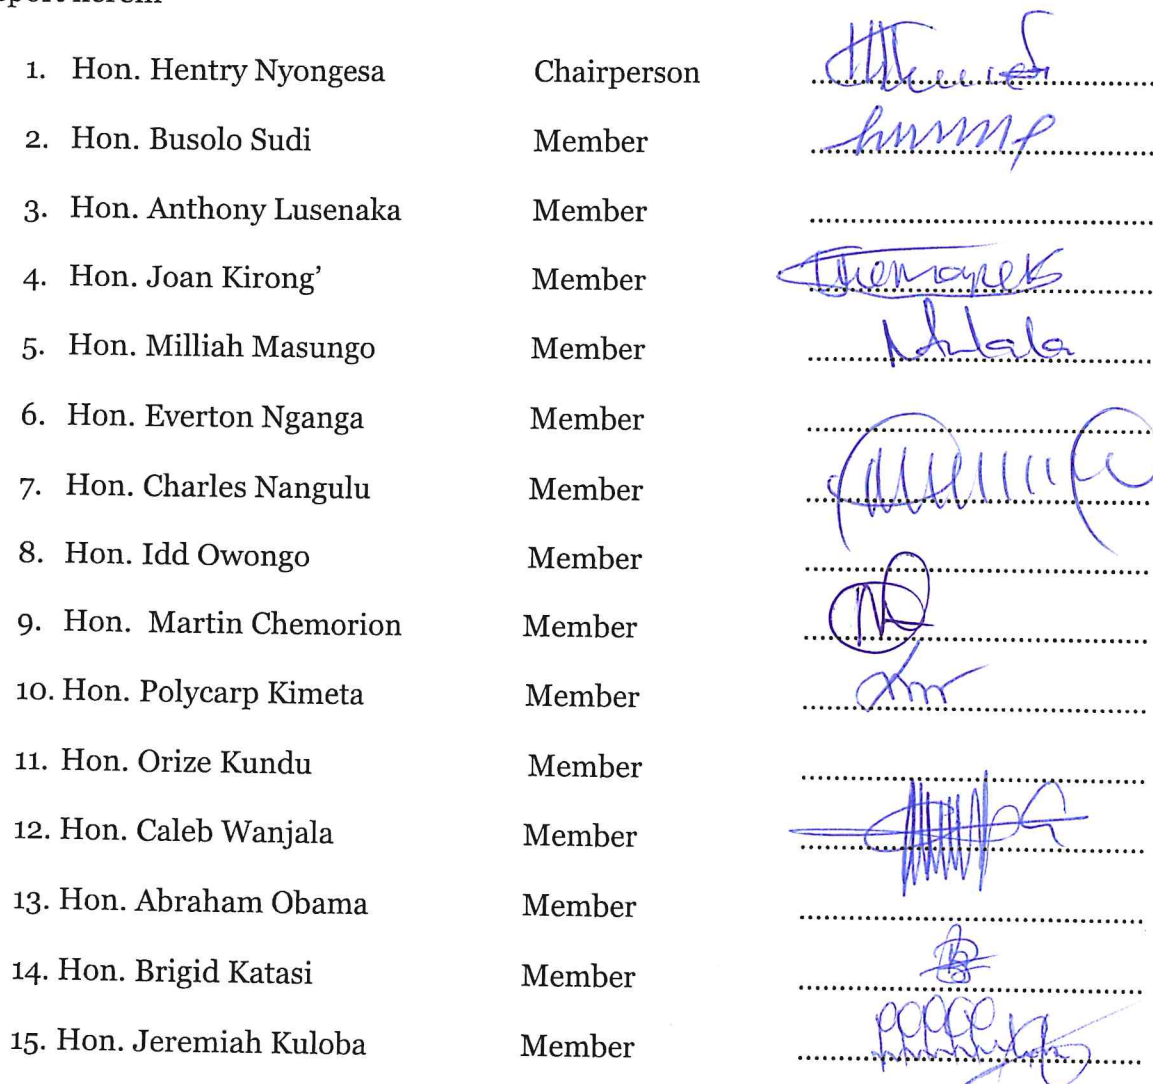 1. Hon. Hentry Nyongesa Chairperson
2. Hon. Busolo Sudi Member
3. Hon. Anthony Lusenaka Member
4. Hon. Joan Kirong’ Member
5. Hon. Milliah Masungo Member
6. Hon. Everton Nganga Member
7. Hon. Charles Nangulu Member
8. Hon. Idd Owongo Member
9. Hon. Martin Chemorion Member
10. Hon. Polycarp Kimeta Member
11. Hon. Orize Kundu Member
12. Hon. Caleb Wanjala Member
13. Hon. Abraham Obama Member
14. Hon. Brigid Katasi Member
15. Hon. Jeremiah Kuloba Member